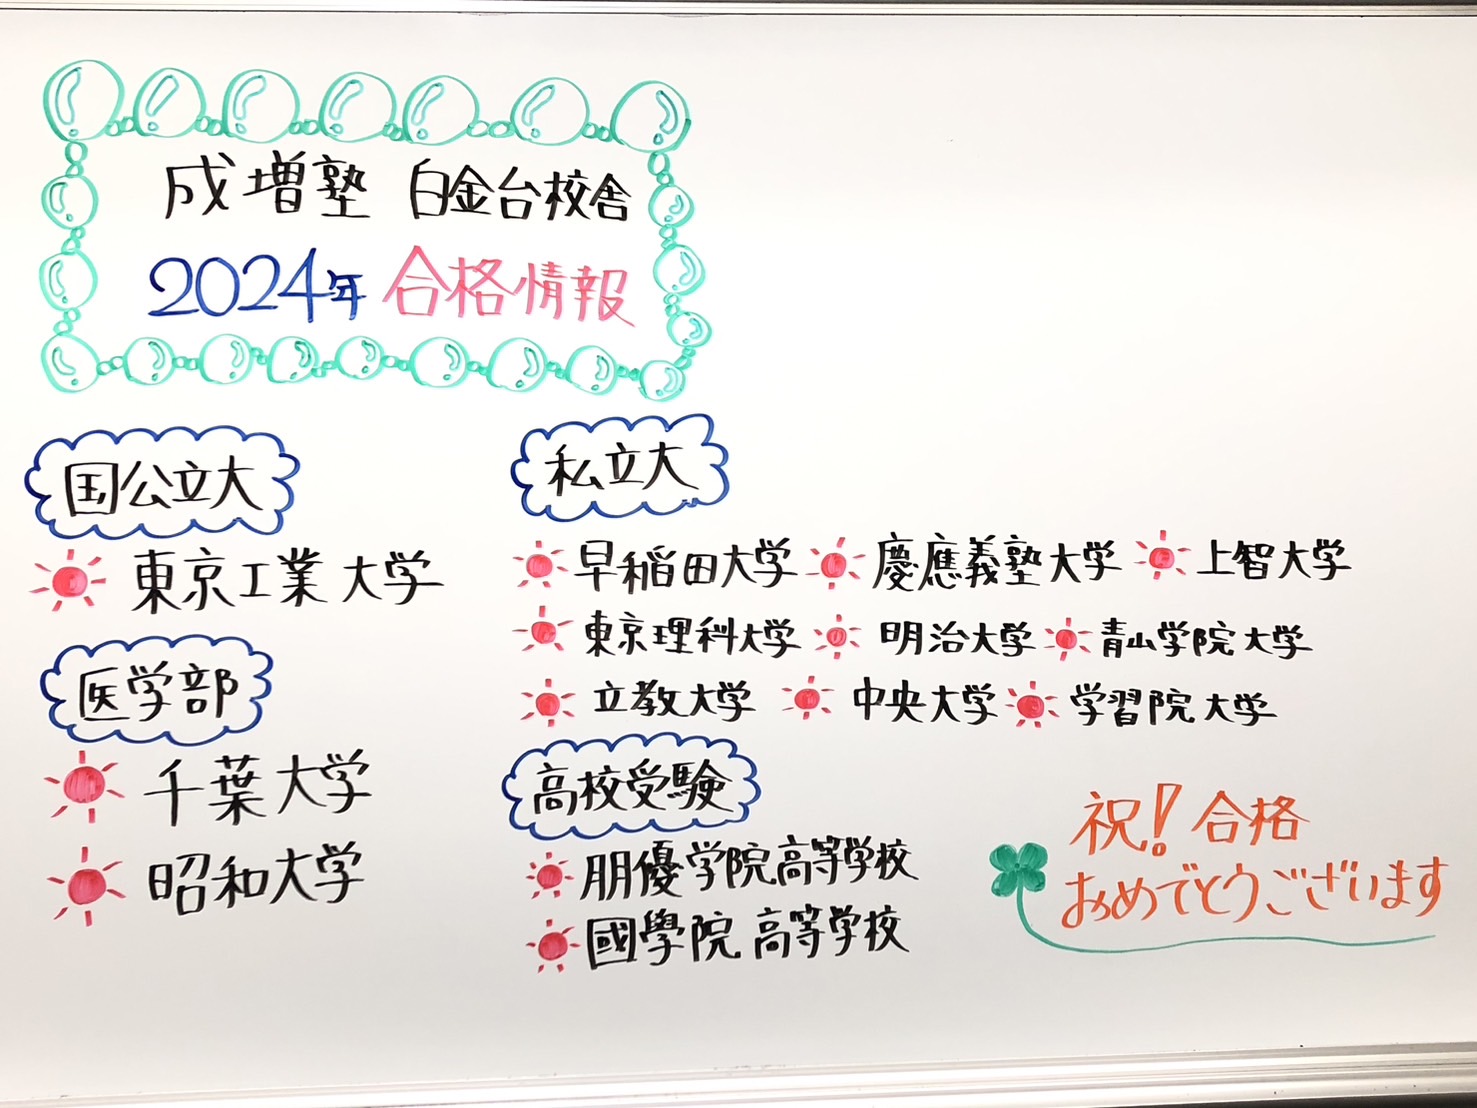 成増塾 白金台校舎
2024年 合格情報
国公立大
東京工業大学
医学部
千葉大学
昭和大学
私立大
早稲田大学 慶應義塾大学 上智大学
東京理科大学 明治大学 青山学院大学
立教大学 中央大学 学習院大学
高校受験
朋優学院高等学校
國學院高等学校
祝!合格
おめでとうございます